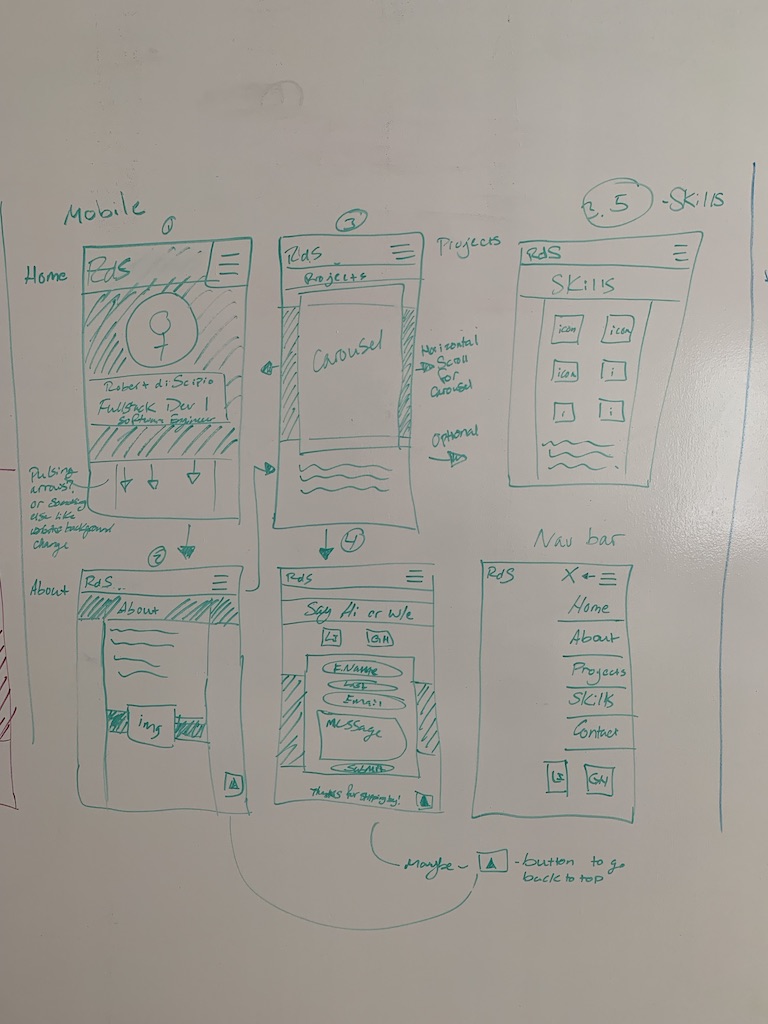 Mobile
1
Home
RdS
Robert diScipio
Fullstack Dev |
Software Engineer
Pulsing
arrows?
or something
else like
website background
change
3
Projects
RdS
Projects
Carousel
Horizontal
Scroll
for
Carousel
Optional
3.5 - Skills
RdS
Skills
icon icon
icon i
i i
2
About
RdS
About
img
4
RdS
Say Hi or w/e
LI GH
F.Name
Last
Email
Message
Submit
Thanks for stopping by!
Nav bar
RdS X ←
Home
About
Projects
Skills
Contact
LI GH
Maybe - ▲ - button to go
back to top